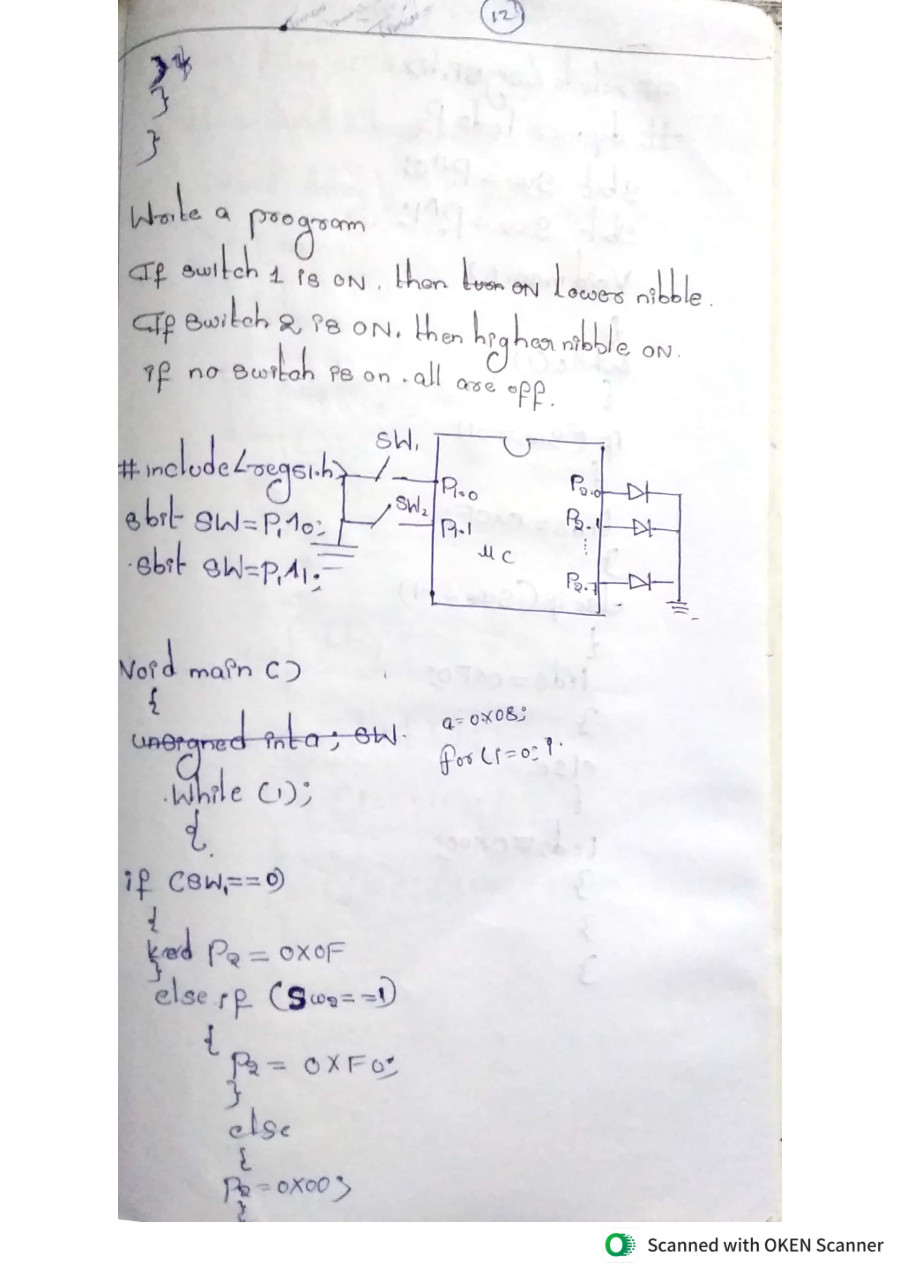 12
}
}
}
Write a program
If switch 1 is ON, then turn ON Lower nibble.
If Switch 2 is ON, then higher nibble ON.
if no switch is on. all are off.
#include<reg51.h>
sbit SW=P1^0;
sbit SW=P1^1;
SW1
SW2
P1.0
P1.1
MC
P2.0
P2.1
P2.7
Void main ()
{
unsigned int a; SW.
a=0x08;
for (i=0; i.
While (1);
{
if (SW1==0)
{
P2 = 0X0F
}
else if (SW2==1)
{
P2 = 0XF0;
}
else
{
P2=0X00;
}
Scanned with OKEN Scanner